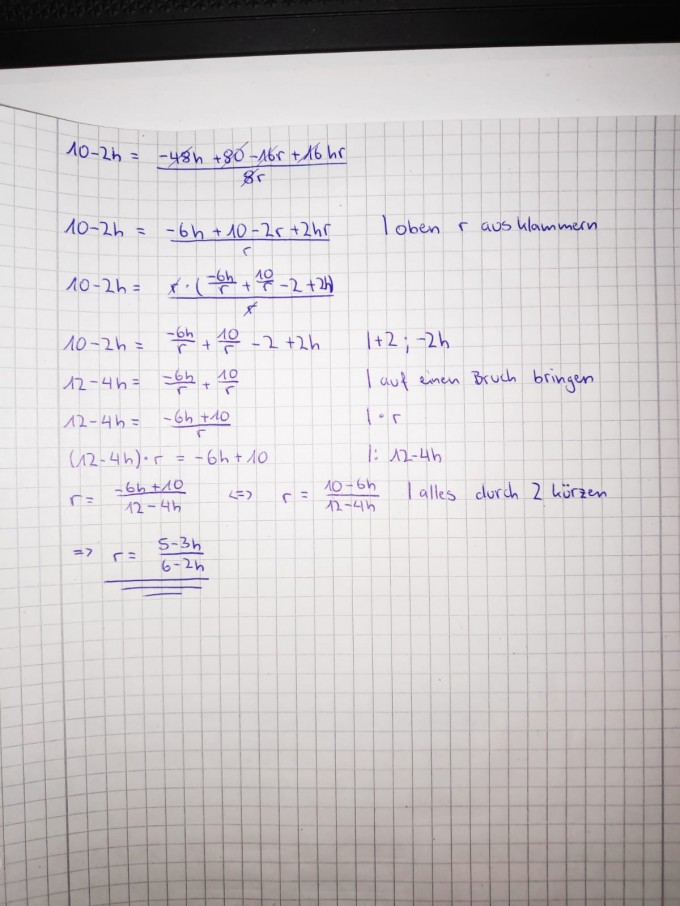 10-2h = (-48h +80 -16r +16hr)/(8r)
10-2h = (-6h +10 -2r +2hr)/r | oben r ausklammern
10-2h = (r · (-6h/r + 10/r - 2 + 2h))/r
10-2h = -6h/r + 10/r - 2 + 2h |+2 ; -2h
12-4h = -6h/r + 10/r | auf einen Bruch bringen
12-4h = (-6h +10)/r | · r
(12-4h)·r = -6h+10 |: 12-4h
r = (-6h+10)/(12-4h) <=> r = (10-6h)/(12-4h) | alles durch 2 kürzen
=> r = (5-3h)/(6-2h)